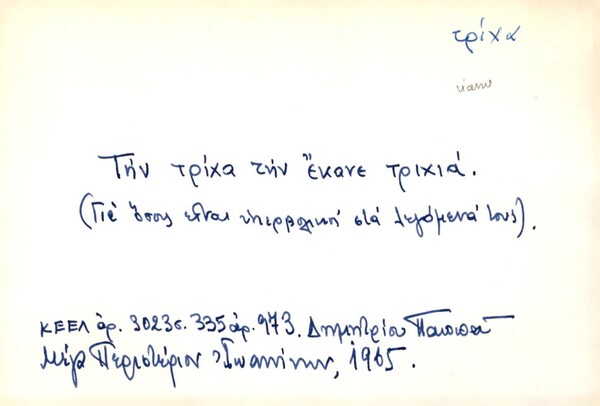 τρίχα
κάνω
Τήν τρίχα τήν ἔκανε τριχιά.
(Γιά ὅσους εἶναι ὑπερβολικοί στά λεγόμενά τους).
ΚΕΕΛ ἀρ. 3023 σ. 335 ἀρ. 973. Δημητρίου Παππᾶ
Μέγα Περιστέριον Ἰωαννίνων, 1965.